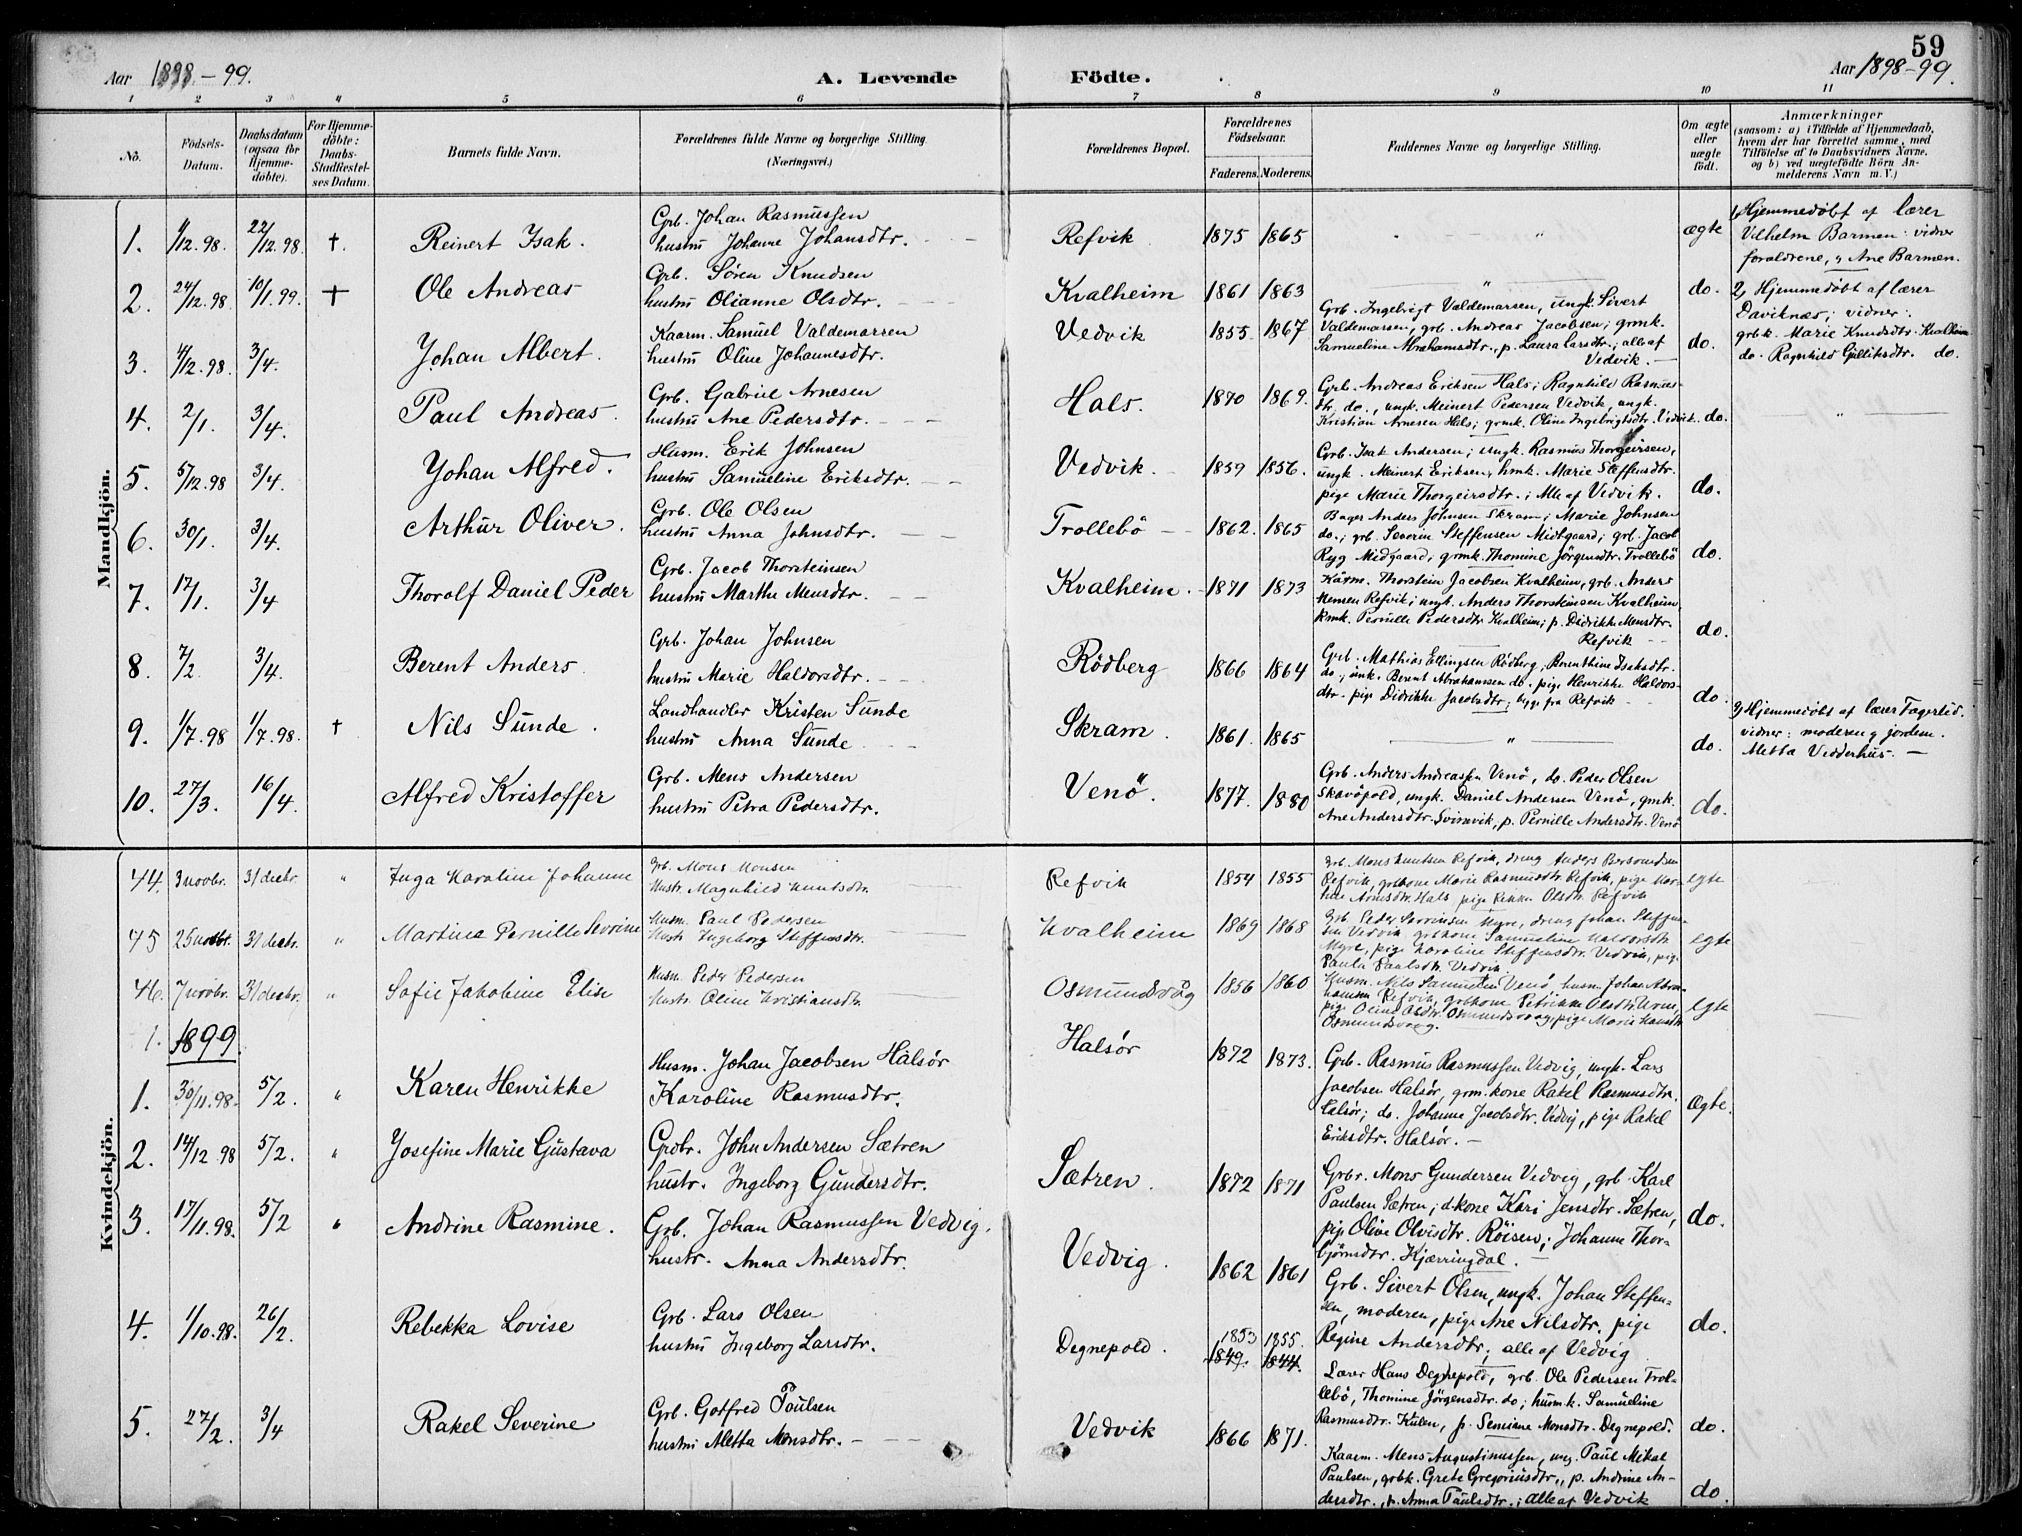 59
Aar 1898-99.
A. Levende Födte.
Aar 1898-99.
1 2 3 4 5 6 7 8 9 10 11
No.
Födsels-Datum.
Daabsdatum (ogsaa for Hjemme-döbte).
For Hjemme-döbte: Daabs-Stadfæstel-ses Datum.
Barnets fulde Navn.
Forældrenes fulde Navne og borgerlige Stilling (Næringsvei.)
Forældrenes Bopæl.
Forældrenes Födselsaar.
Faderens. Moderens.
Faddernes Navne og borgerlige Stilling.
Om ægte eller uægte födt.
Anmærkninger
(saasom: a) i Tilfælde af Hjemmedaab,
hvem der har forrettet samme, med
Tilföielse af to Daabsvidners Navne,
og b) ved uægtefödte Börn An-
melderens Navn m. V.)
Mandkjön.
1. 1/12.98. 22/12.98 †. Reinert Isak.
Grb. Johan Rasmussen
hustru Johanne Johansdtr.
Refvik 1875 1865 " ægte
1, Hjemmedøbt af lærer
Vilhelm Barmen: vidner
forældrene, og Ane Barmen.
2. 24/12.98 10/1.99. † Ole Andreas
Grb. Søren Knudsen
hustru Olianne Olsdtr.
Kvalheim 1861 1863 " do.
2, Hjemmedøbt af lærer
Daviknæs; vidner:
grbk. Marie Knudsdtr. Kvalheim
do. Ragnhild Gulliksdtr. do.
3. 4/12.98. 3/4. Johan Albert.
Kaarm. Samuel Valdemarsen
hustru Oline Johannesdtr.
Vedvik 1855 1867
Grb. Ingebrigt Valdemarsen, ungk. Sivert
Valdemarsen, grb. Andreas Jacobsen; grmk.
Samueline Abrahamsdtr., p. Laura Larsdtr.; alle af
Vedvik. do.
4. 2/1. 3/4. Paul Andreas.
Grb. Gabriel Arnesen
hustru Ane Pedersdtr.
Hals. 1870 1869.
Grb. Andreas Eriksen Hals; Ragnhild Rasmus-
dtr. do., ungk. Meinert Pedersen Vedvik, ungk.
Kristian Arnesen Hals; grmk. Oline Ingebrigtsdtr. Vedvik. do. "
5. 5/12.98 3/4. Johan Alfred.
Husm. Erik Johnsen
hustru Samueline Eriksdtr.
Vedvik. 1859 1856.
Grb. Isak Andersen; ungk. Rasmus Thorgeirsen,
ungk. Meinert Eriksen, hmk. Marie Steffensdtr.
pige Marie Thorgeirsdtr.; Alle af Vedvik. do.
6. 30/1. 3/4. Arthur Oliver.
Grb. Ole Olsen
hustru Anna Johnsdtr.
Trollebö 1862. 1865
Bager Anders Johnsen Skram; Marie Johnsen
do.; grb. Severin Steffensen Midtgaard; grb. Jacob
Ryg Midgaard; grmk. Thomine Jörgensdtr. Trollebö do.
7. 17/1. 3/4 Thorolf Daniel Peder
Grb. Jacob Thorsteinsen
hustru Marthe Monsdtr.
Kvalheim. 1871 1873
Kårm. Thorstein Jacobsen Kvalheim, grb. Anders
Monsen Refvik; ungk. Anders Thorsteinsen Kvalheim
kmk. Pernille Pedersdtr. Kvalheim; p. Didrikke Monsdtr.
Refvik do.
8. 7/2 3/4. Berent Anders.
Grb. Johan Johnsen
hustru Marie Haldorsdtr.
Rödberg 1866 1864
Grb. Mathias Ellingsen Rödberg; Berenthine Isaksdtr.
do., unk. Berent Abrahamsen do. pige Henrikke Haldors-
dtr. pige Didrikke Jacobsdtr; begge fra Refvik do.
9. 1/7.98 1/7.98. † Nils Sunde.
Landhandler Kristen Sunde
hustru Anna Sunde
Skram. 1861. 1865 " do.
9, Hjemmedøbt af lærer Fagerlid.
vidner: moderen og jordem.
Metta Vedderhus.
10. 27/3. 16/4. Alfred Kristoffer
Grb. Mons Andersen
hustru Petra Pedersdtr.
Venö. 1877. 1880
Grb. Anders Andreassen Venö, do. Peder Olsen
Skavöpold, ungk. Daniel Andersen Venö, gmk.
Ane Andersdtr. Svinevik, p. Pernille Andersdtr. Venö do.
Kvindekjön.
44. 3 novbr. 31 decbr. " Inga Karoline Johanne
Grb. Mons Monsen
Hustr. Magnhild Knutsdtr.
Refvik 1854 1855
Grb. Mons Knutsen Refvik, dreng Anders
Refvik, grbkone Marie Rasmusdtr. Refvik, pige Mar-
the Arnesdtr. Hals, pige Rikke Olsdtr. Refvik egte
45 25 novbr. 31 decbr. " Martine Pernille Sevrine
Husm. Paul Pedersen
Hustr. Ingeborg Steffensdtr.
Kvalheim 1869 1868
Grb. Peder Sørensen Myre, dreng Johan Steffen-
sen Vedvik, grbkone Samueline Haldorsdtr.
Myre, pige Karoline Steffensdtr. Vedvik, pige
Paulsdtr. Vedvik. egte
46. 7 novbr. 31 decbr. " Sofie Jakobine Elise
Husm. Peder Pedersen
Hustr. Oline Kristiansdtr.
Osmundsvåg 1856 1860
Husm. Nils Samuelsen Venö, husm. Johan Abra-
hamsen Refvik, grbkone Petrikke Olsdtr.
pige Oline Olsdtr. Osmundsvaag, pige Marie Hansdtr
Osmundsvaag. egte
1. 1899.
1. 30/11.98. 5/2. " Karen Henrikke
Husm. Johan Jacobsen Halsör
Karoline Rasmusdtr.
Halsör 1872 1873.
Grb. Rasmus Rasmussen Vedvig, ungk. Lars
Jacobsen Halsör, grm.kone Rakel Rasmusdtr.
Halsör; do. Johanne Jacobsdtr. Vedvig, pige Rakel
Eriksdtr. Halsör. Ægte.
2. 14/12 98 5/2. " Josefine Marie Gustava
Grdbr. John Andersen Sætren
hustr. Ingeborg Gundersdtr.
Sætren. 1872 1871
Grbr. Mons Gundersen Vedvig, grb. Karl
Paulsen Sætren; d.kone Kari Jensdtr. Sætren,
pige Oline Olvisdtr. Röisen; Johanne Thor-
björnsdtr. Kjærringdal. do.
3. 17/11.98. 5/2 " Andrine Rasmine.
Grb. Johan Rasmussen Vedvig.
hustr. Anna Andersdtr.
Vedvig. 1862 1861
Grb. Sivert Olsen, ungk. Johan Steffen-
sen, moderen, pige Ane Nilsdtr. pige
Regine Andersdtr; alle af Vedvig do.
4. 1/10.98. 26/2. Rebekka Lovise
Grb. Lars Olsen
hustru Ingeborg Larsdtr.
Degnepold. 1853 1855.
1849. 1844.
Lærer Hans Degnepold, grb. Ole Pedersen Trol-
lebö, Thomine Jörgensdtr. do; husm.k. Samueline
Rasmusdtr. Kulen, p. Semine Monsdtr. Degnepold. do.
5. 27/2. 3/4 Rakel Severine
Grb. Gotfred Paulsen
hustru Aletta Monsdtr.
Vedvik 1866 1871.
Kaarm. Mons Augustinussen, ung. Paul Mikal
Paulsen, grbk. Grete Gregoriusdtr., p. Andrine An-
dersdtr., p. Anna Paulsdtr.; alle af Vedvik do.